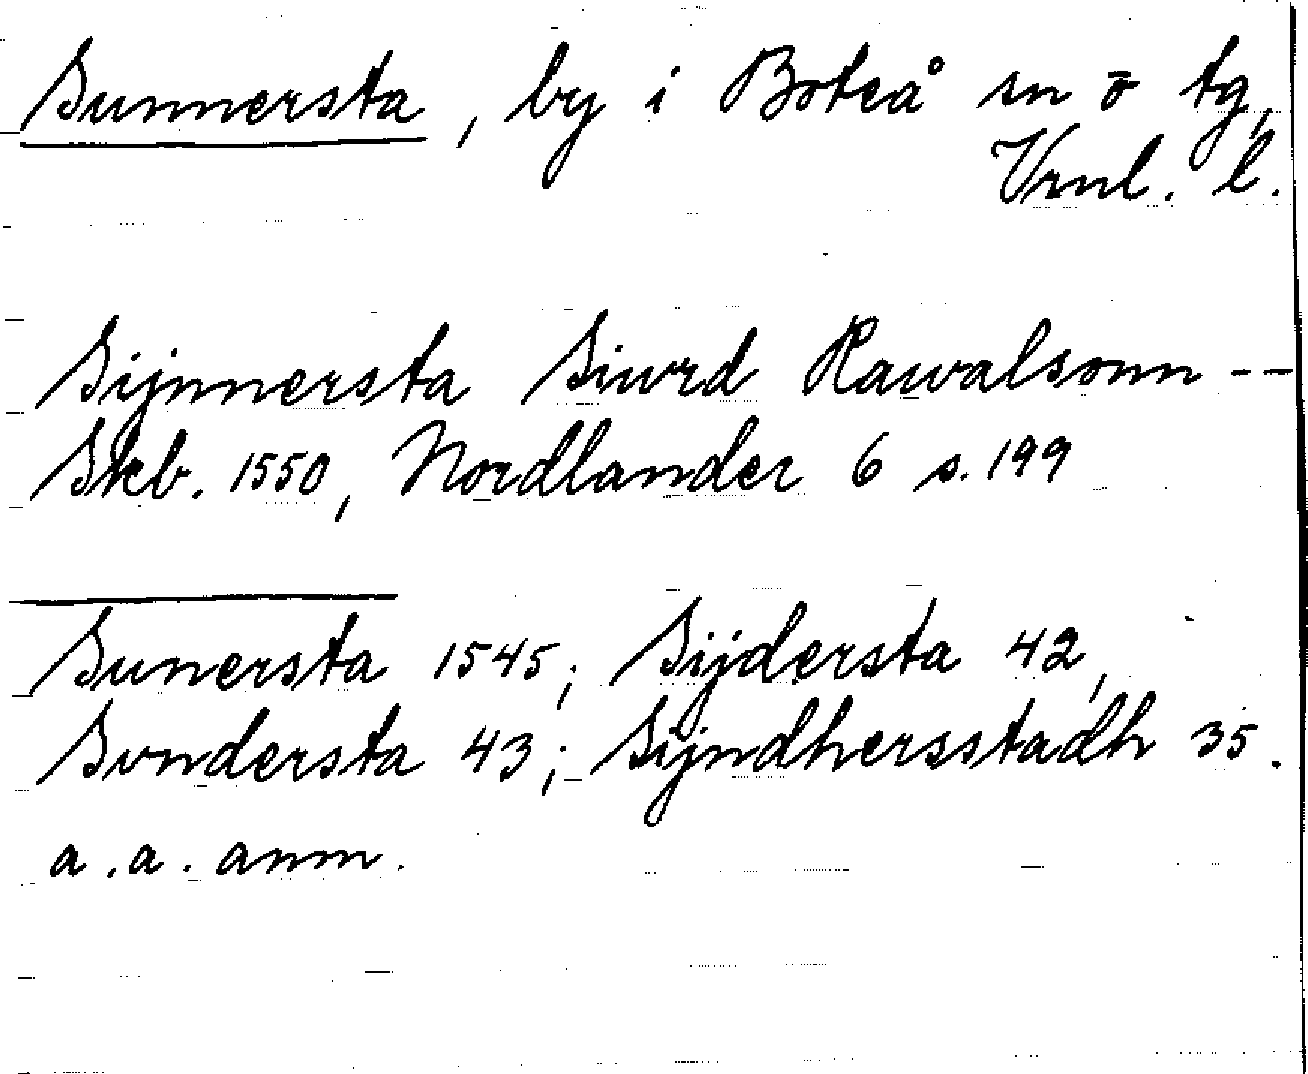 Sunnersta, by i Boteå sn o tg,
Vrnl. l.
Sijnnersta Siurd Hawalsonn --
Skb. 1550, Nordlander 6 s. 199
Sunersta 1545; Sijdersta 42,
Svndersta 43; Sijndhersstadh 35.
a. a. anm.